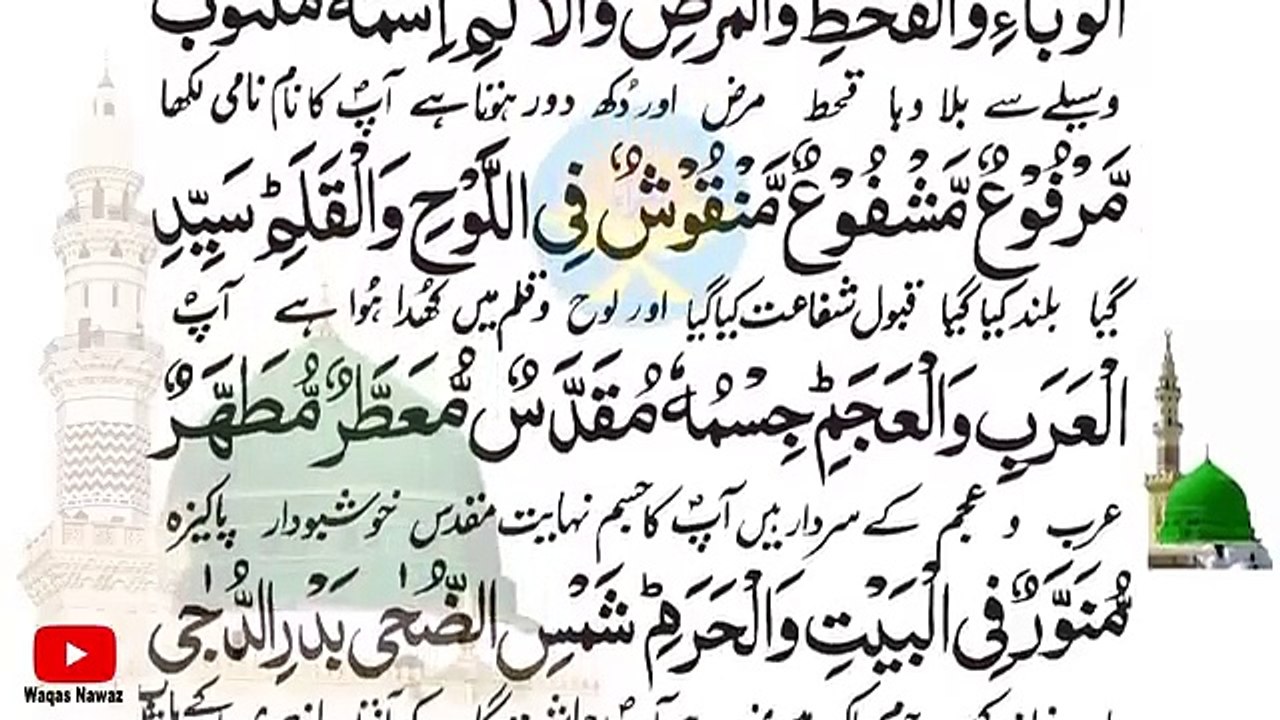 الْوَبَاءِ وَالْقَحْطِ وَالْمَرَضِ وَالْاَلَمِ اِسْمُهٗ مَكْتُوْبٌ
وسیلے سے بلا وبا قحط مرض اور دُکھ دور ہوتا ہے آپؐ کا نام نامی لکھا
مَّرْفُوْعٌ مَّشْفُوْعٌ مَّنْقُوْشٌ فِی اللَّوْحِ وَالْقَلَمِؕ سَیِّدِ
گیا بلند کیا گیا قبول شفاعت کیا گیا اور لوح و قلم میں کُھدا ہُوا ہے آپؐ
الْعَرَبِ وَالْعَجَمِؕ جِسْمُهٗ مُقَدَّسٌ مُّعَطَّرٌ مُّطَهَّرٌ
عرب و عجم کے سردار ہیں آپؐ کا جسم نہایت مقدس خوشبودار پاکیزہ
مُّنَوَّرٌ فِی الْبَیْتِ وَالْحَرَمِؕ شَمْسِ الضُّحٰی بَدْرِ الدُّجٰی
Waqas Nawaz